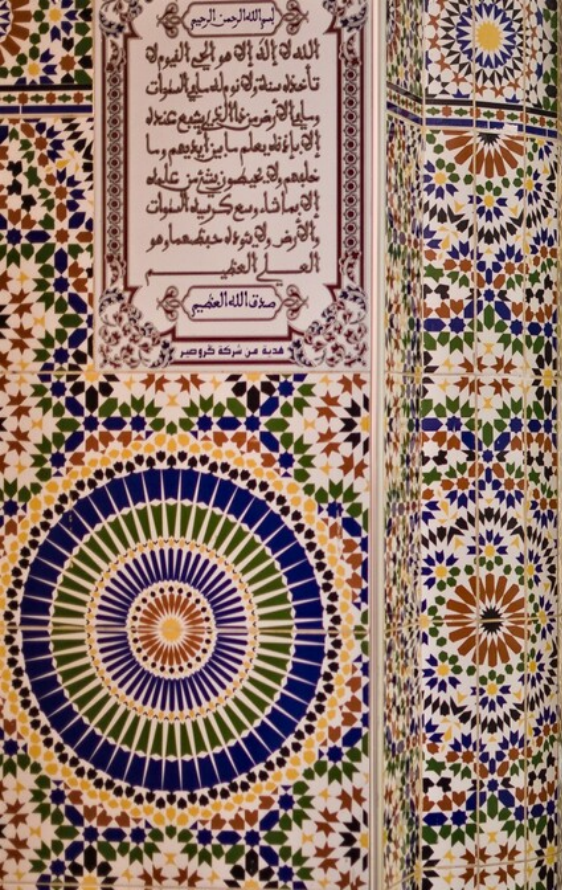 بسم الله الرحمن الرحيم
الله لا إله إلا هو الحي القيوم لا
تأخذه سنة ولا نوم له ما في السموات
وما في الأرض من ذا الذي يشفع عنده
إلا بإذنه يعلم ما بين أيديهم وما
خلفهم ولا يحيطون بشئ من علمه
إلا بما شاء وسع كرسيه السموات
والأرض ولا يئوده حفظهما وهو
العلي العظيم
صدق الله العظيم
هدية من شركة گروصير